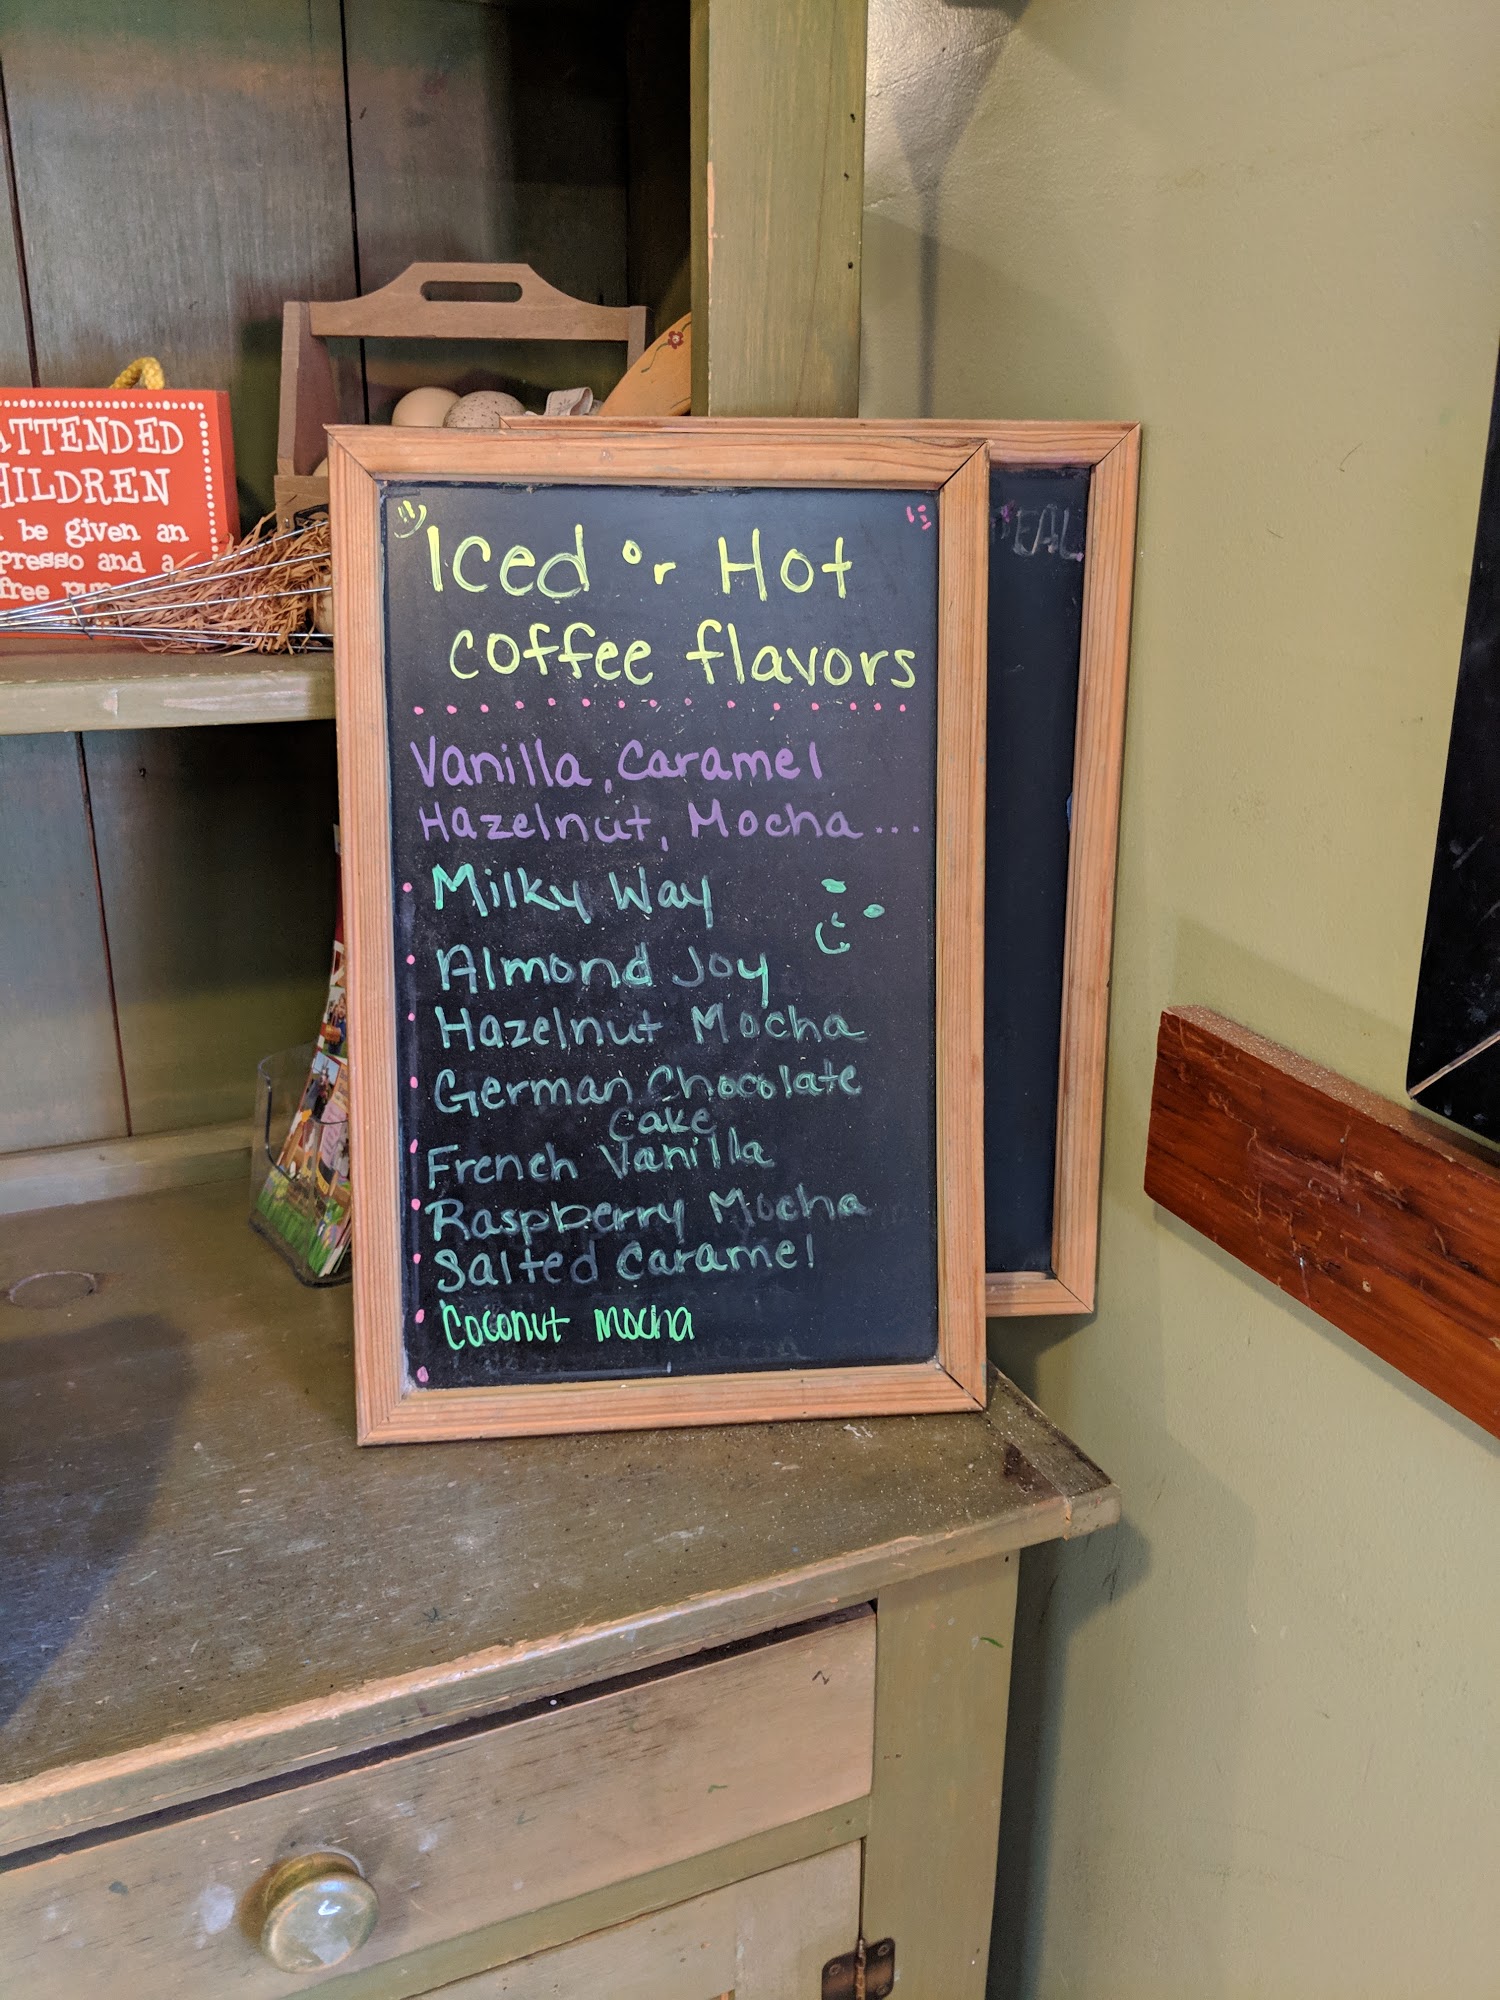 ATTENDED
HILDREN
be given an
presso and a
free
Iced or Hot
coffee flavors
Vanilla, Caramel
Hazelnut, Mocha...
Milky Way
Almond Joy
Hazelnut Mocha
German Chocolate
Cake
French Vanilla
Raspberry Mocha
Salted Caramel
Coconut Mocha
EAL